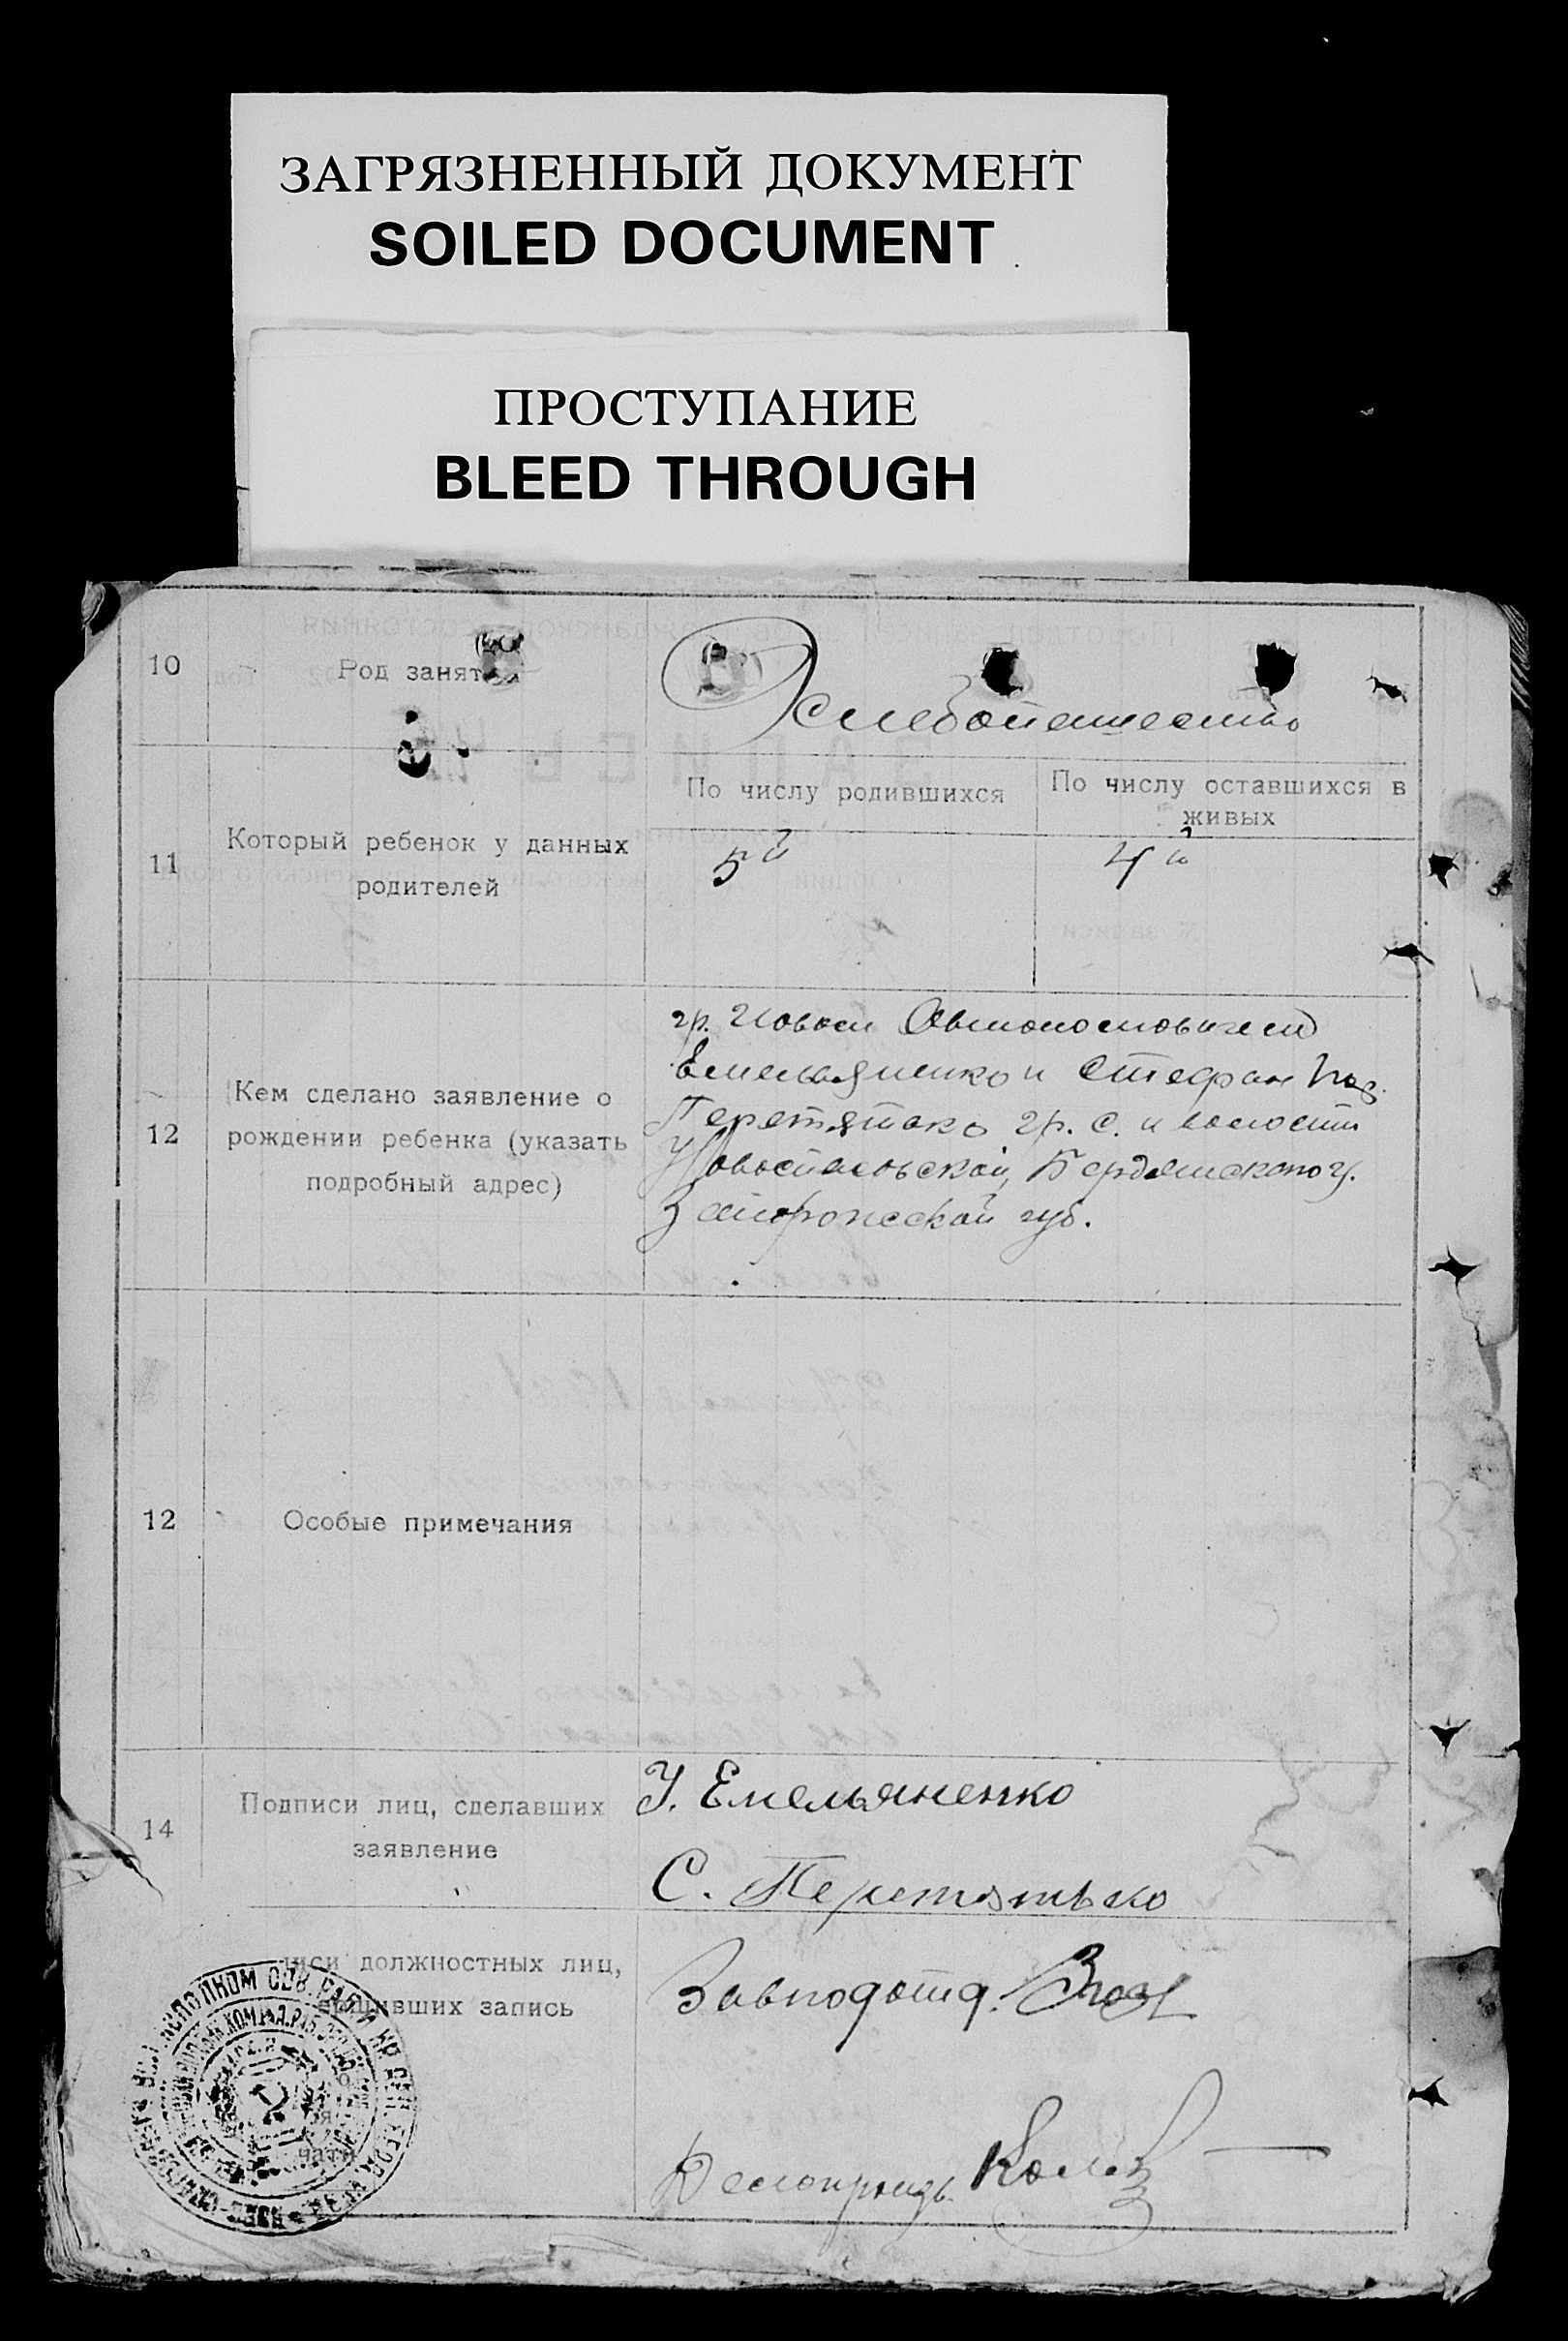 ЗАГРЯЗНЕННЫЙ ДОКУМЕНТ
SOILED DOCUMENT
ПРОСТУПАНИЕ
BLEED THROUGH
10
Род занят
Хлебопашество
11
Который ребенок у данных
родителей
По числу родившихся
По числу оставшихся в
живых
5й
4й
12
Кем сделано заявление о
рождении ребенка (указать
подробный адрес)
гр.
Емельяненко и Стефан
Перетятько гр. с. и волости
Новоспасовской, Бердянского у.
Запорожской губ.
12
Особые примечания
14
Подписи лиц, сделавших
заявление
У. Емельяненко
С. Перетятько
иси должностных лиц,
вших запись
Завподотд.
Делопроизв.